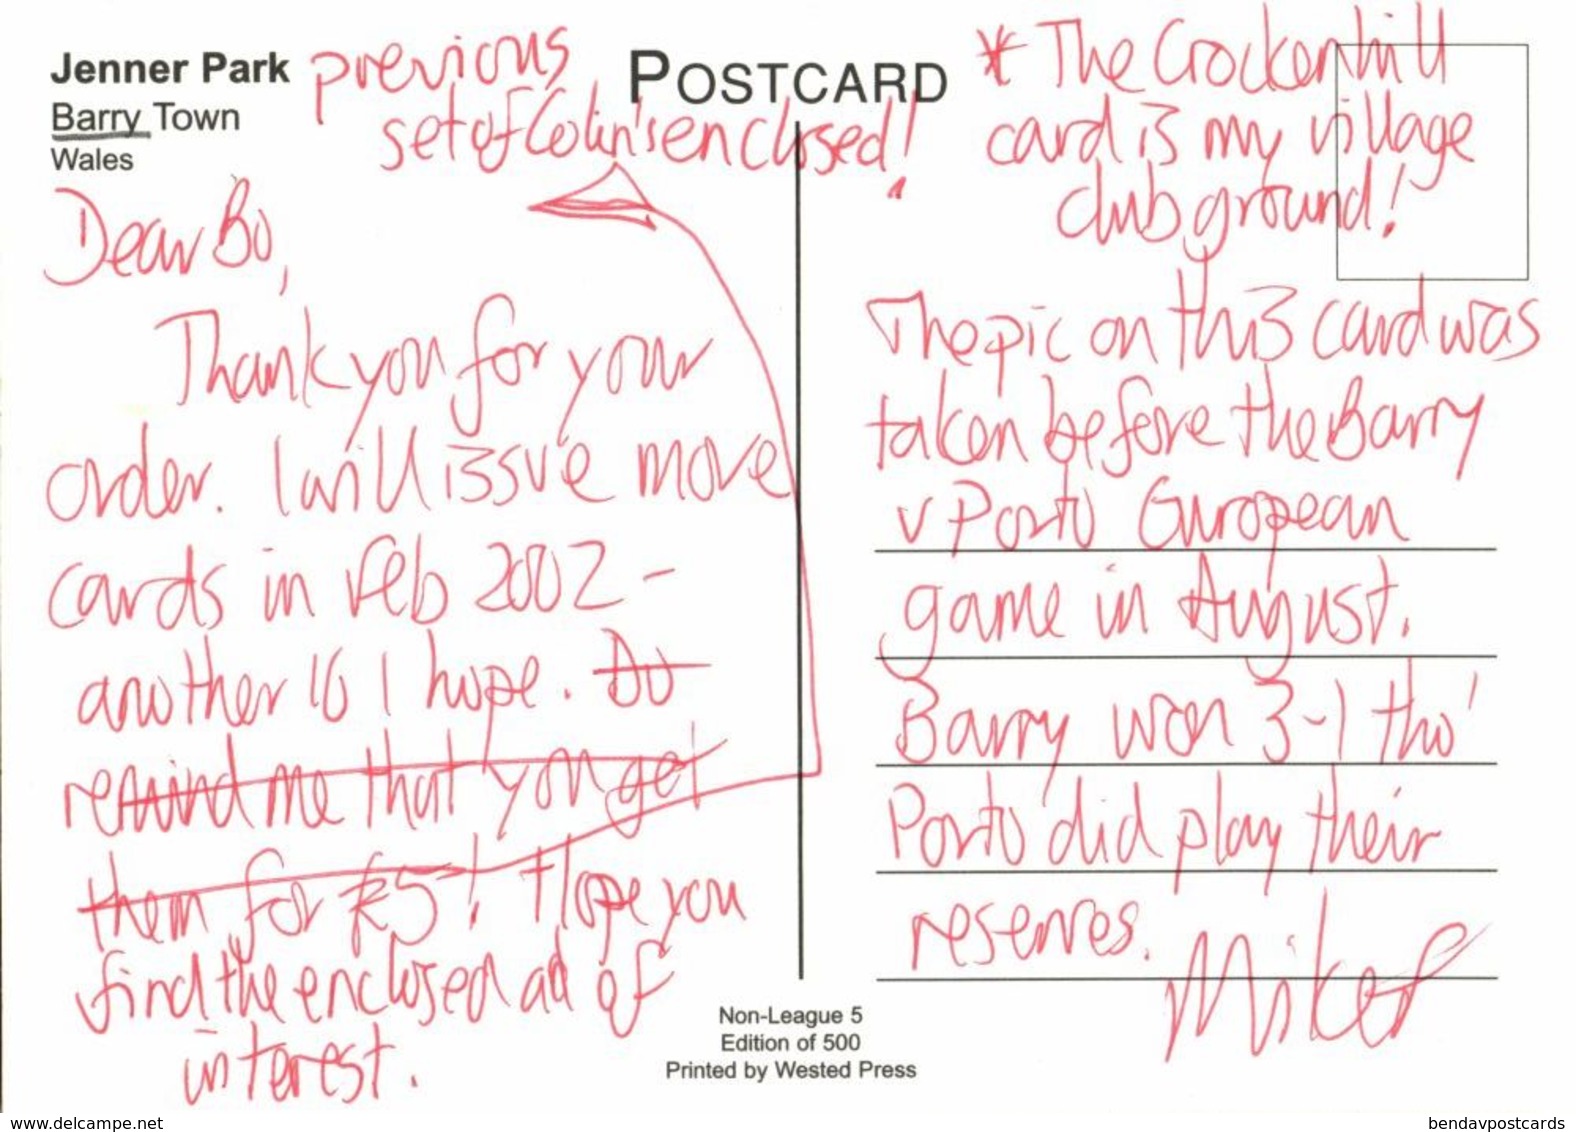 Jenner Park
Barry Town
Wales
previous
set of Colin's enclosed!
POSTCARD
* The Crockenhill
card is my village
club ground!
Dear Bo,
Thank you for your
order. I will issue more
cards in Feb 2002 -
another 16 I hope. Do
remind me that you get
them for £5! Hope you
find the enclosed ad of
interest.
The pic on this card was
taken before the Barry
v Porto European
game in August.
Barry won 3-1 tho'
Porto did play their
reserves.
Mike
Non-League 5
Edition of 500
Printed by Wested Press
www.delcampe.net
bendavpostcards